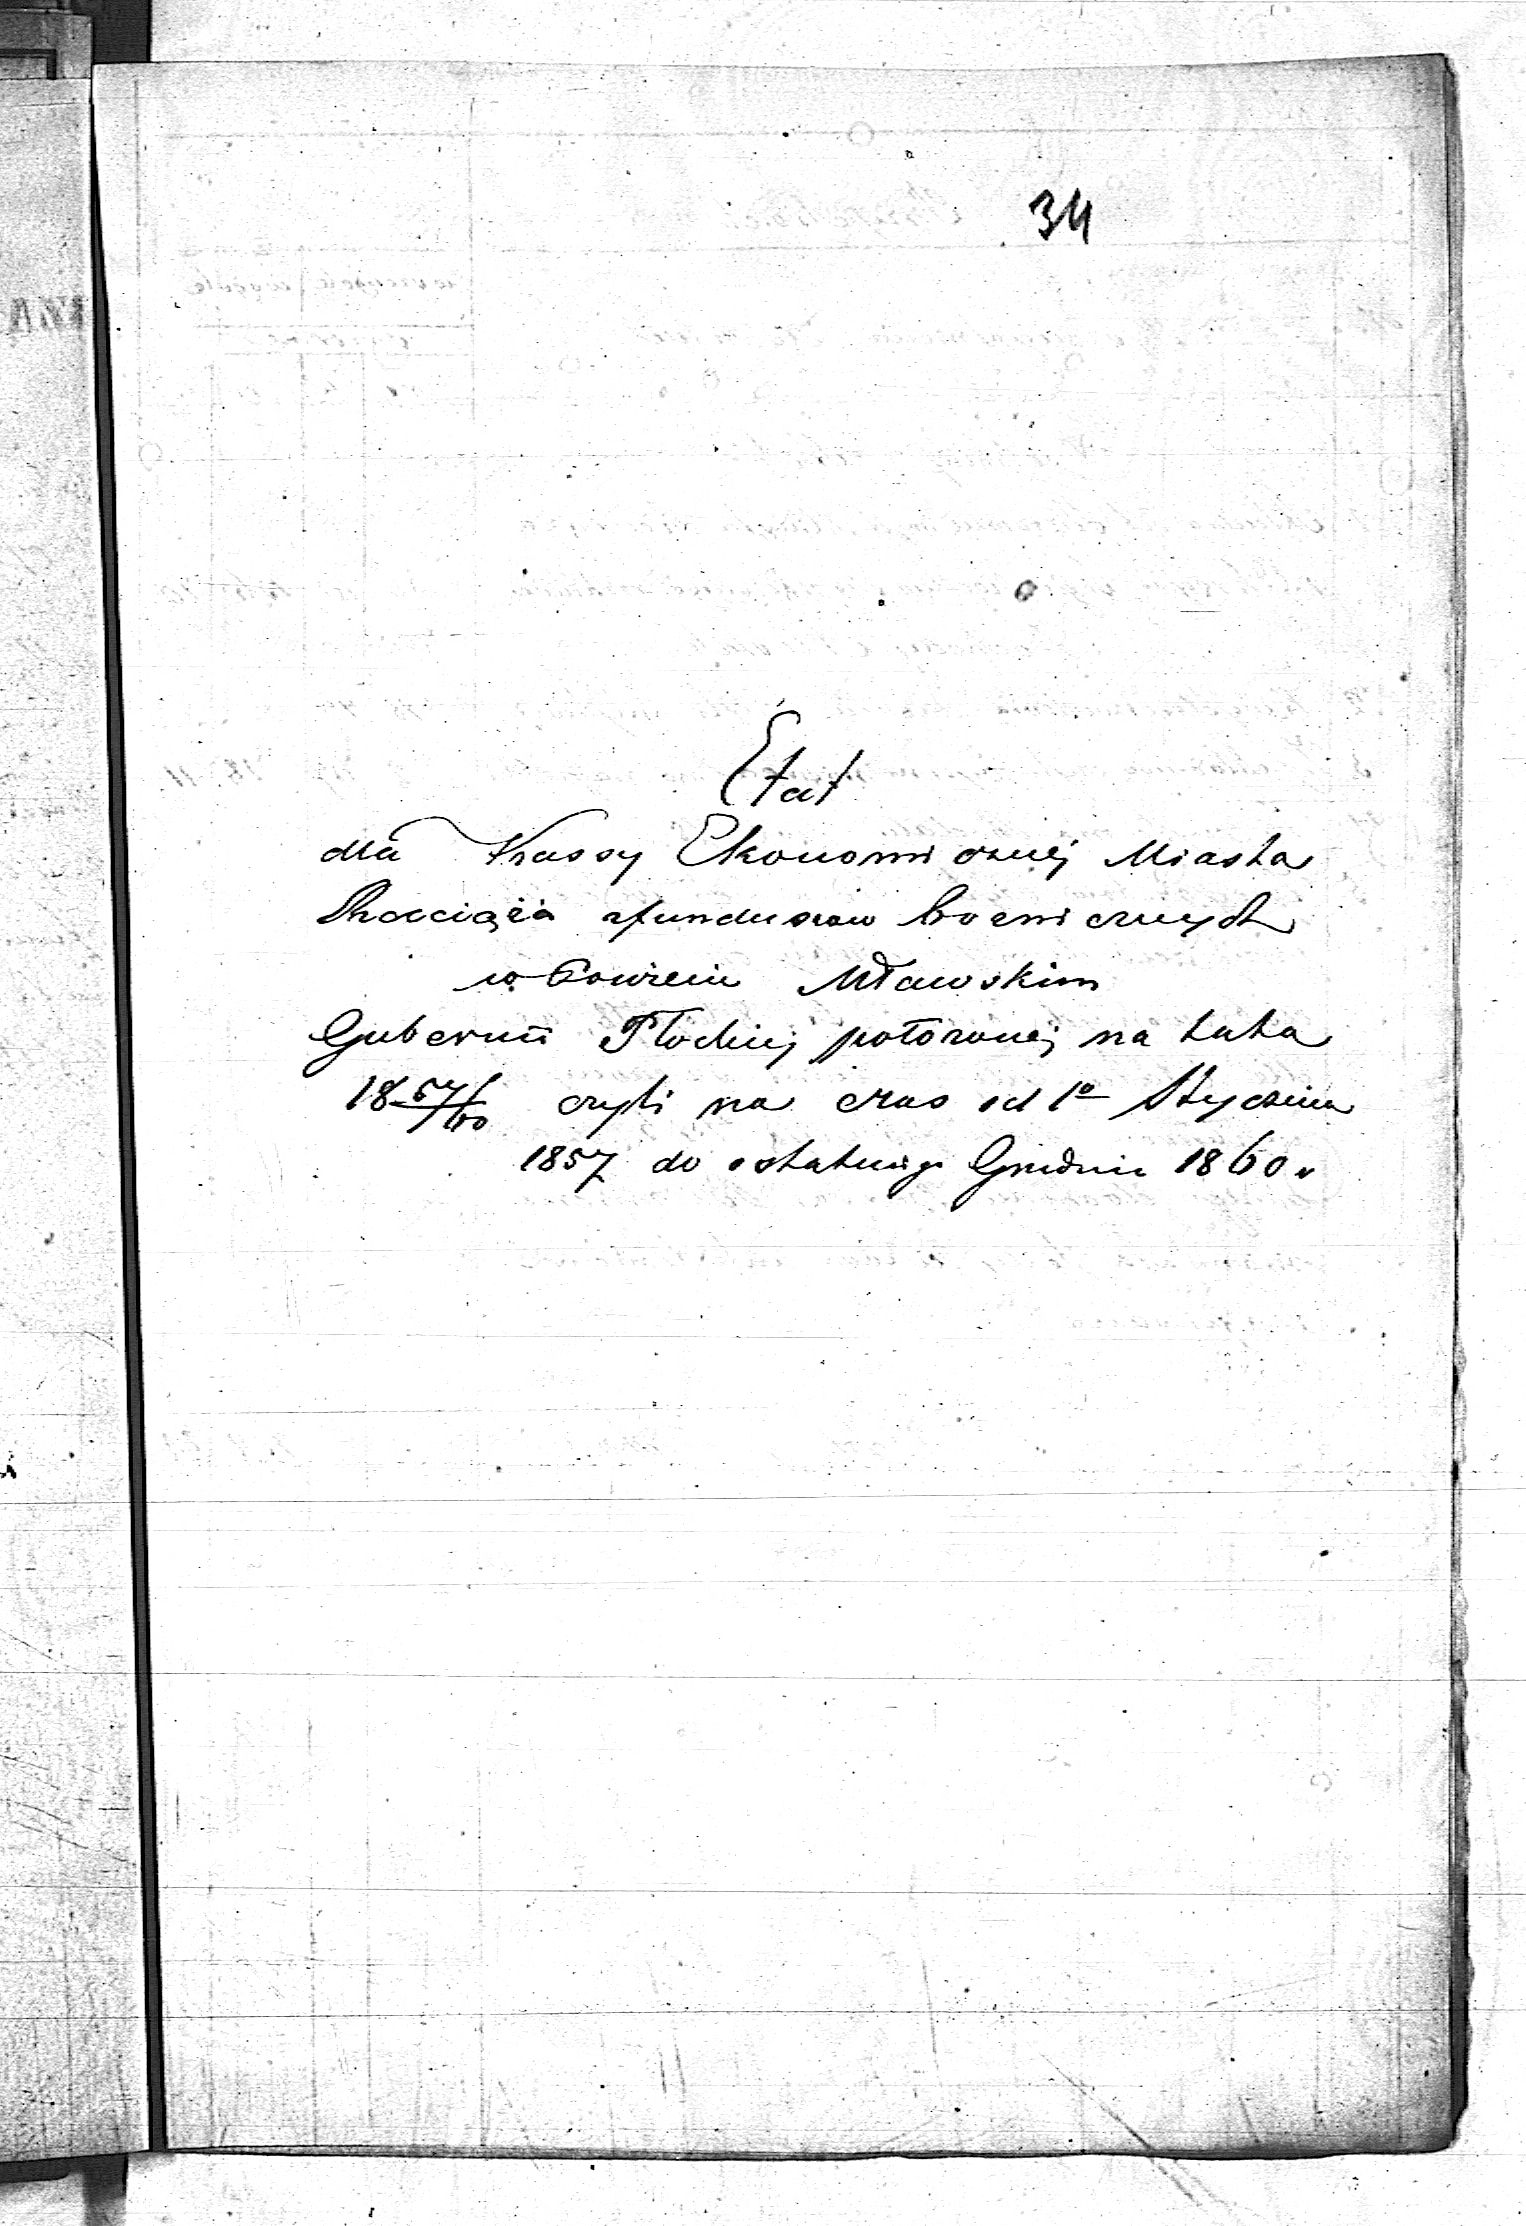 34
Etat
dla Kassy Ekonomicznej Miasta
Raciąża z funduszów Bożniczych
w Powiecie Mławskim
Gubernii Płockiej położonej na lata
18 57/60 czyli na czas od 1o Stycznia
1857 do ostatniego Grudnia 1860 r